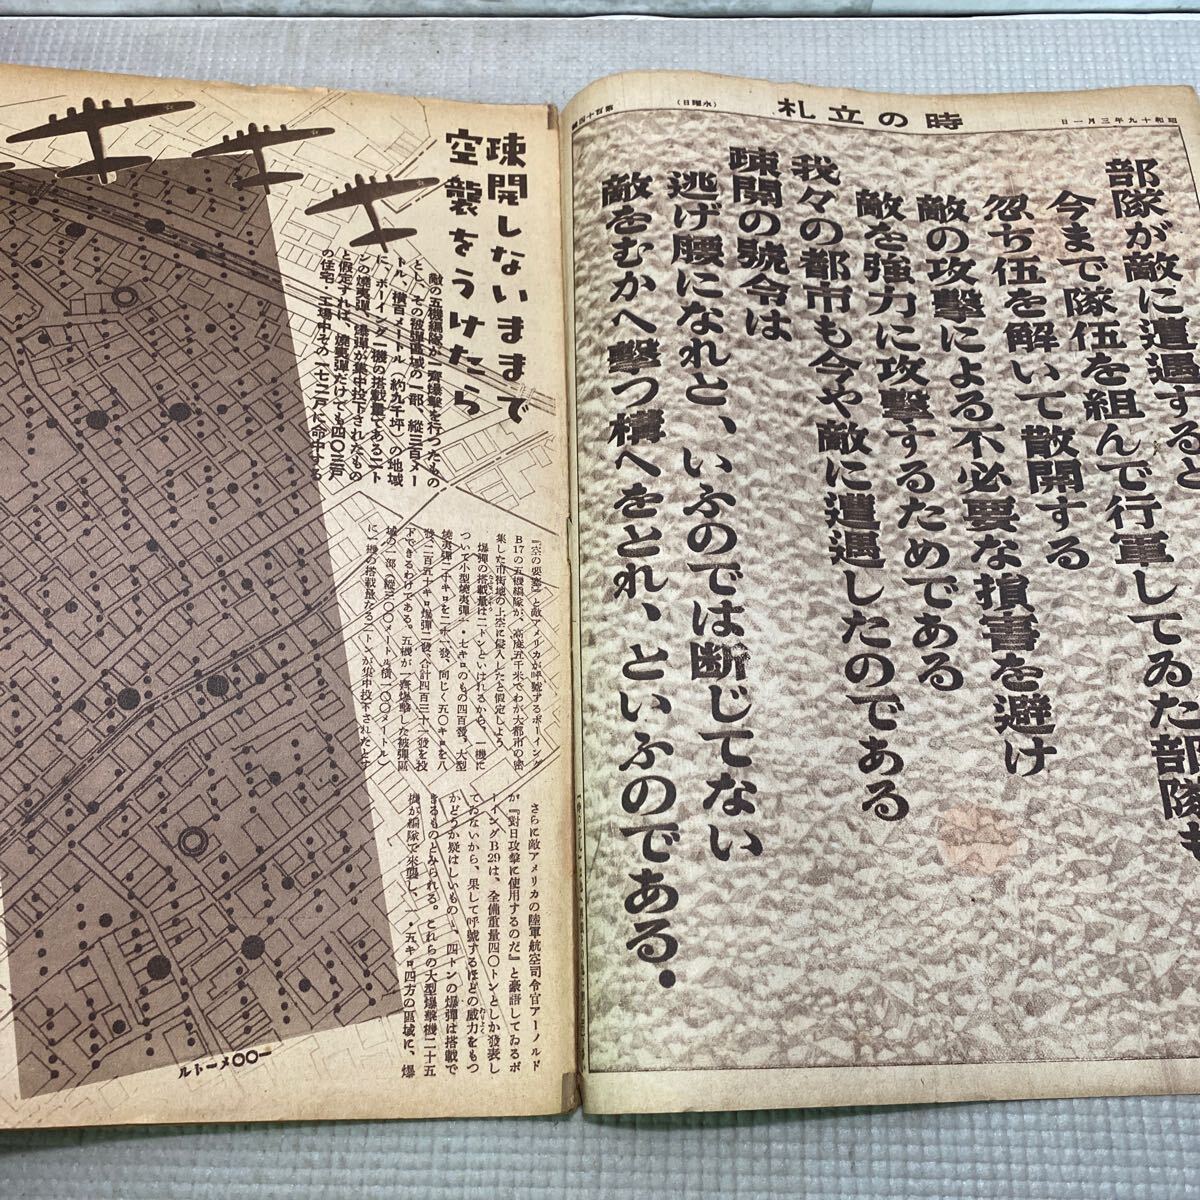 昭和十九年三月一日
時の立札
(水曜日)
部隊が敵に遭遇すると
今まで隊伍を組んで行軍してゐた部隊も
忽ち伍を解いて散開する
敵の攻撃による不必要な損害を避け
敵を強力に攻撃するためである
我々の都市も今や敵に遭遇したのである
疎開の號令は
逃げ腰になれと、いふのでは断じてない
敵をむかへ撃つ構へをとれ、といふのである.
疎開しないままで
空襲をうけたら
敵の五機編隊が一齊爆撃を行つたもの
とし、その被彈區域の一部、縱三百メー
トル、横百メートル(約九千坪)の地域
に、ボーイング一機の搭載量である二ト
ンの燒夷彈、爆彈が集中投下されたもの
と假定すれば、燒夷彈だけでも四〇三戸
の住宅、工場中その一七二戸に命中する
『空の要塞』と敵アメリカが呼號するボーイング
B17の五機編隊が、高度五千米でわが大都市の密
集した市街地の上空に侵入したと假定しよう
爆彈の搭載量は二トンといはれるから、一機に
ついて小型燒夷彈一・七キロのもの四百發、大型
燒夷彈二十キロを二十一發、同じく五〇キロを八
發、二百五十キロ爆彈二發、合計四百三十一發を投
下できるわけである。五機が一齊爆撃した被彈區
域の一部(縱三〇〇メートル横一〇〇メートル)
に一機の搭載量たる二トンが集中投下されたとす
さらに敵アメリカの陸軍航空司令官アーノルド
が『對日攻撃に使用するのだ』と豪語してゐるボ
ーイングB29は、全備重量四〇トンとしか發表し
てゐないから、果して呼號するほどの威力をもつ
かどうか疑はしいものの、四トンの爆彈は搭載で
きるものとみられる。これらの大型爆撃機二十五
機が編隊で來襲し、一・五キロ四方の區域に、爆
一〇〇メートル